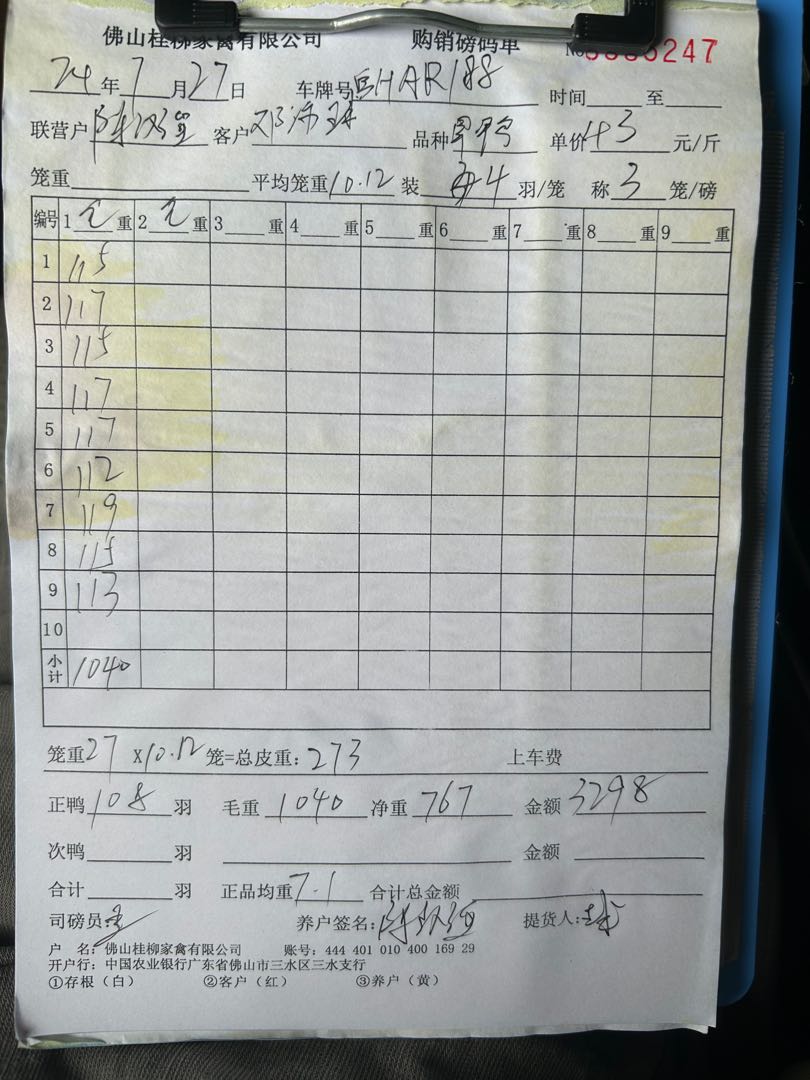 佛山桂柳家禽有限公司 购销磅码单 No 247
24年7月27日 车牌号 HAR188 时间 至
联营户 陈 客户 邓沛 品种 单价 43 元/斤
笼重 平均笼重10.12 装 4 羽/笼 称 3 笼/磅
编号 1 重 2 重 3 重 4 重 5 重 6 重 7 重 8 重 9 重
1 115
2 117
3 115
4 117
5 117
6 112
7 119
8 115
9 113
10
小计 1040
笼重27 X10.12笼=总皮重:273 上车费
正鸭108羽 毛重1040 净重767 金额3298
次鸭 羽 金额
合计 羽 正品均重7.1 合计总金额
司磅员: 养户签名:陈 提货人:
户 名:佛山桂柳家禽有限公司 账号:444 401 010 400 169 29
开户行:中国农业银行广东省佛山市三水区三水支行
①存根(白) ②客户(红) ③养户(黄)